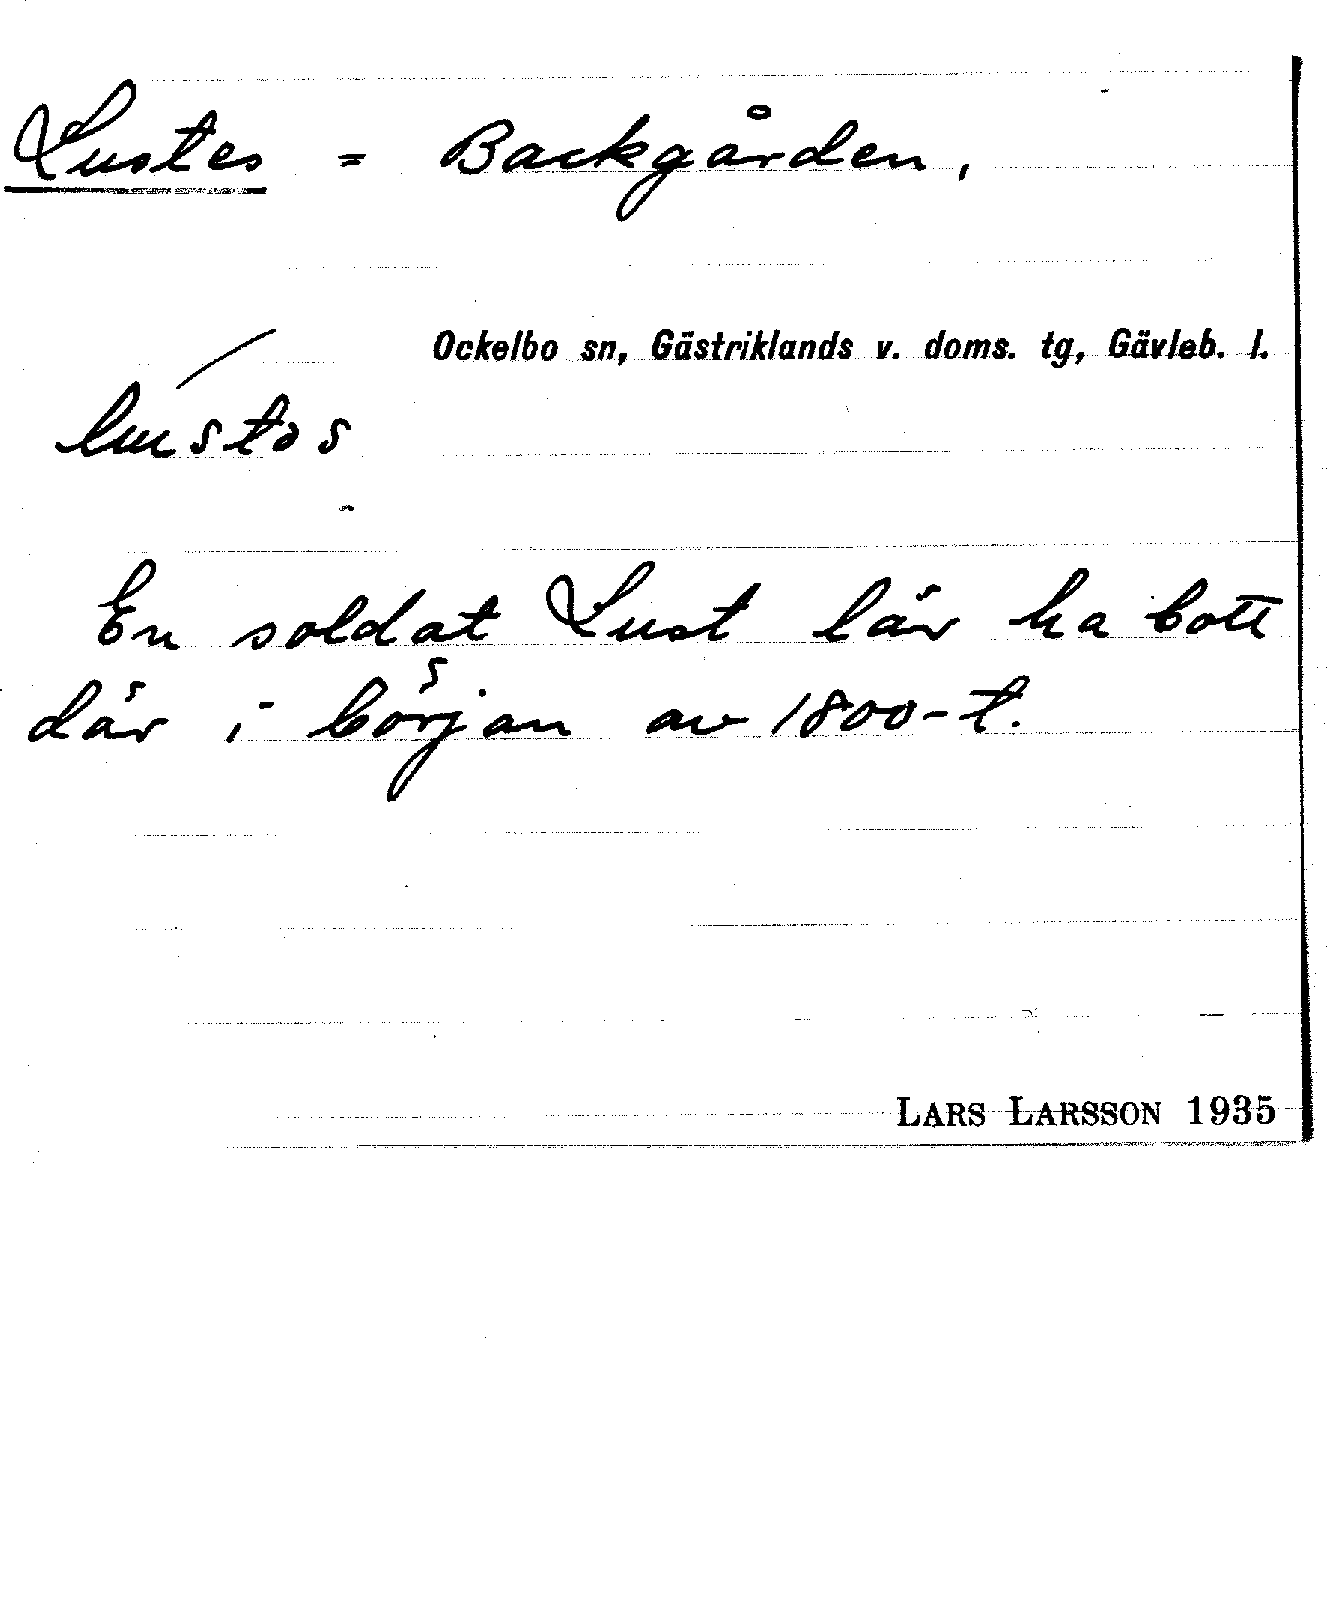 Lustes = Backgården,
Ockelbo sn, Gästriklands v. doms. tg, Gävleb. l.
En soldat Lust lär ha bott
där i början av 1800-t.
LARS LARSSON 1935